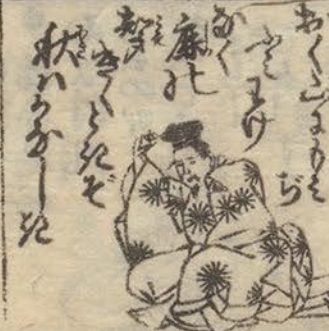 おく山にもみぢ
ふみわけ
なく
鹿の
聲
きくときぞ
秋ハかなしき